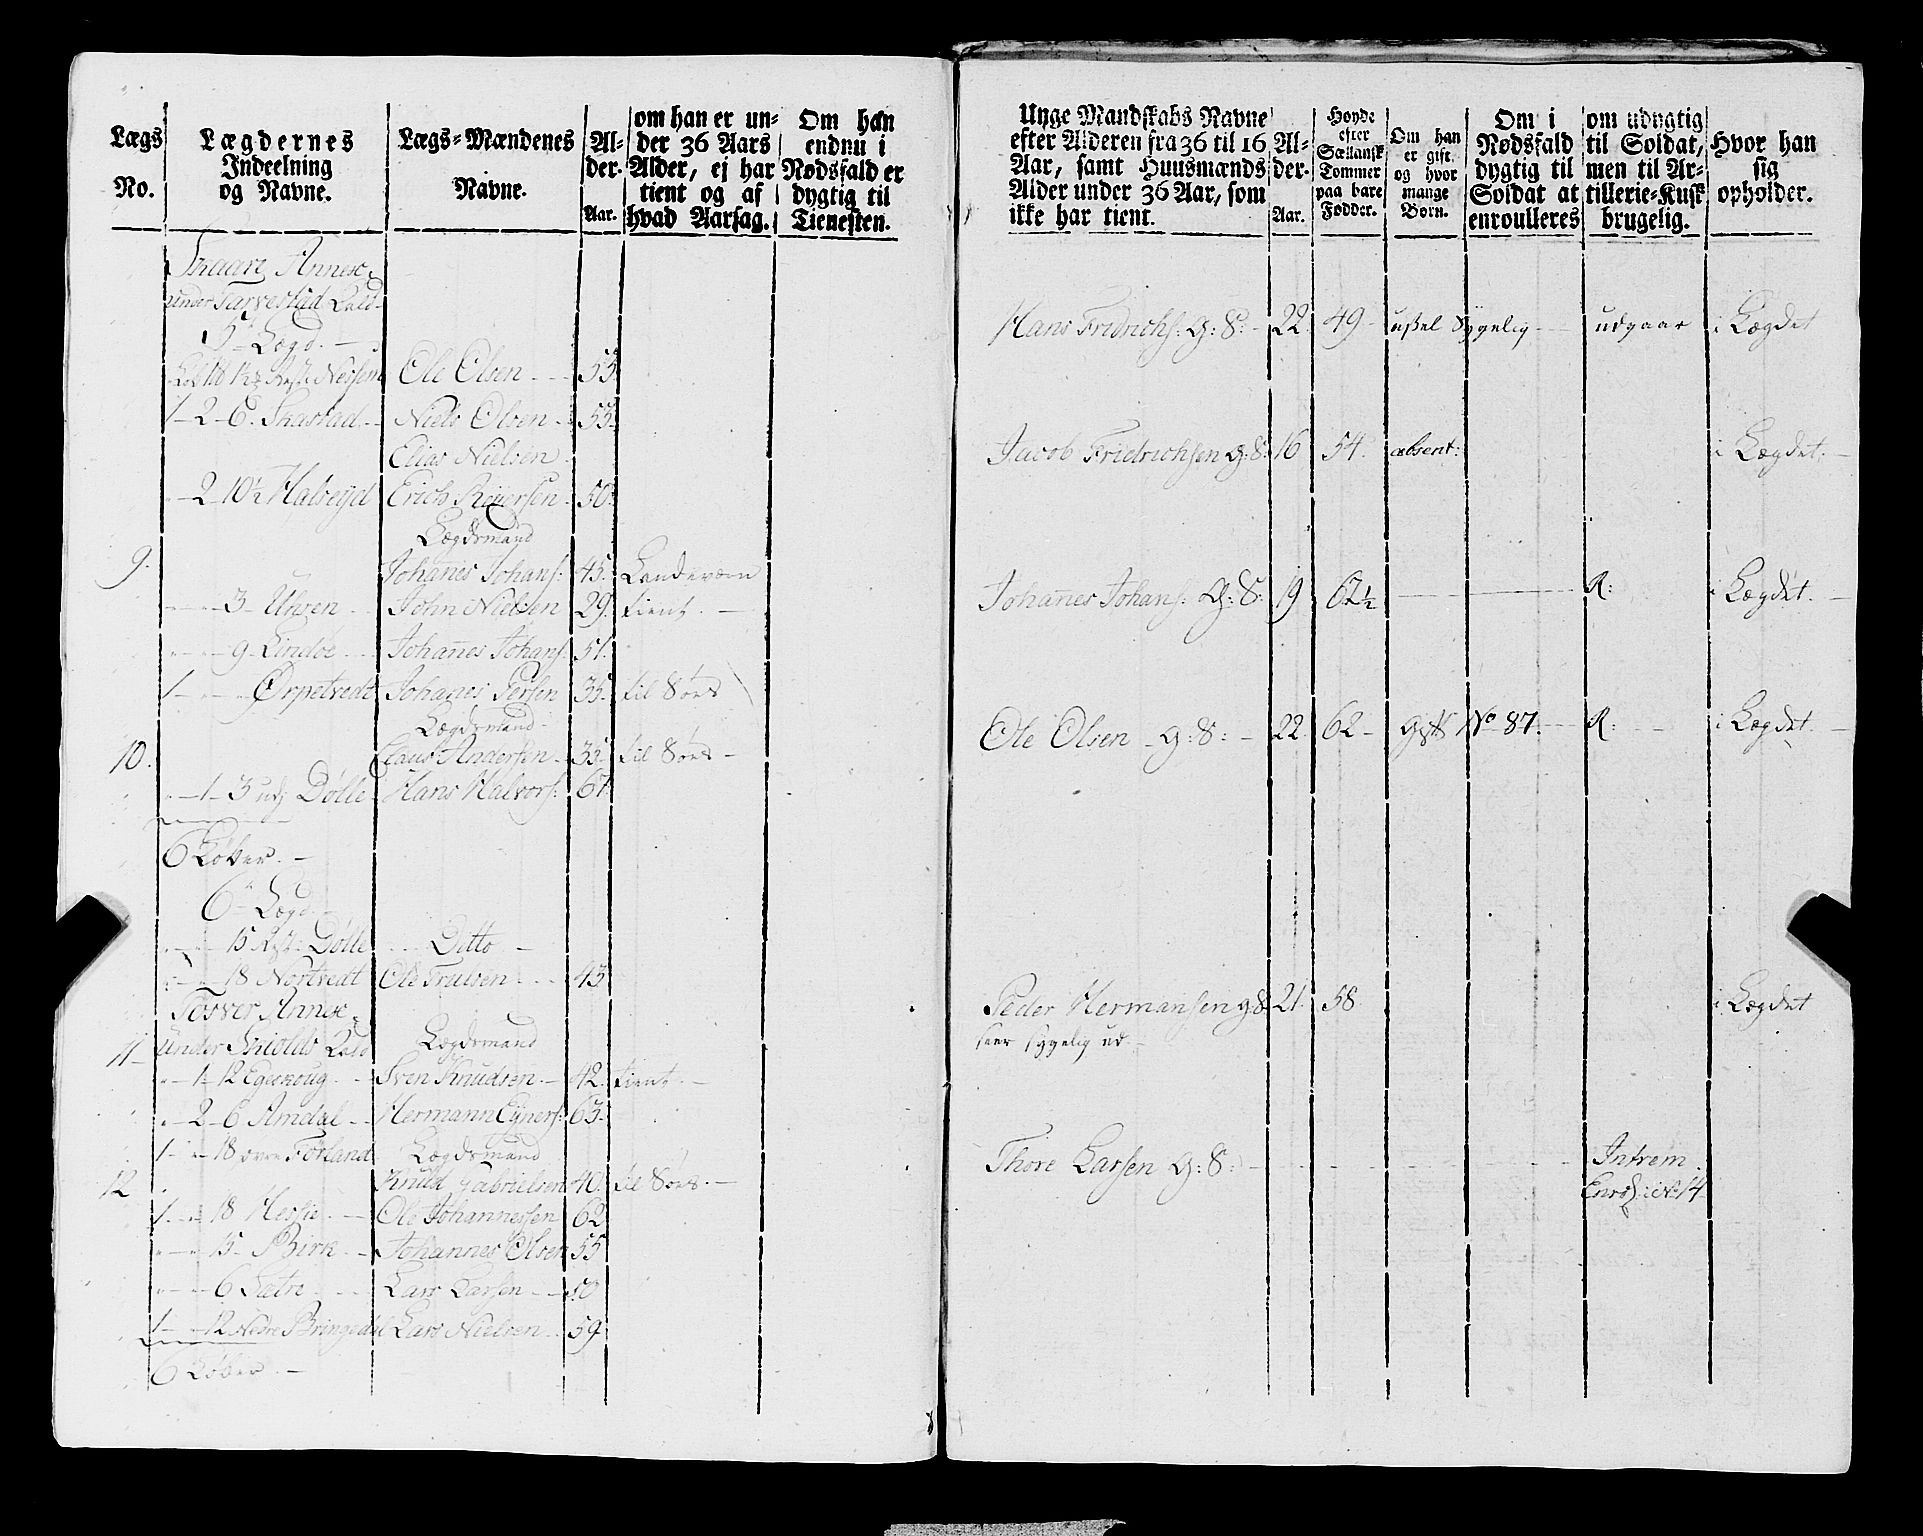 Lægs No.
Lægdernes Indeelning og Navne.
Lægs-Mændenes Navne.
Al- der. Aar.
om han er un- der 36 Aars Alder, ej har tient og af hvad Aarsag.
Om han endnu i Nødsfald er dygtig til Tienesten.
Skaarz Annex
under Torvestad Kald
5te Lægd.
Ole Olsen 55.
1-2-6. Skastad. Niels Olsen 55.
Elias Nielsen
2-10½ Halseyd Erich Knuersen 50.
Lægdsmand
9. Johanes Johans: 45. Landeværn
3 Uhren John Nielsen 29. tient.
9 Lindoe Johanes Johans: 51.
1 Ørpetvedt Johanes Persen 35. til Søes
Lægdsmand
10. Claus Andersen 35. til Søes
1-3 udj Dølle Hans Halvors: 67.
6 Løber.
6te Lægd
15 Dølle Ditto
18 Nortvedt Ole Truesen 43
Tosver Annex
under Skiolds Kald Lægdsmand
11
1-12 Egeskoug Sven Knudsen 42. tient.
2-6 Amdal Hermann Eyvers: 63.
1-18 øvre Førland Lægdsmand
12 Knud Gabrielsen 40. til Søes.
1-18 Hessie Ole Johannessen 62
15 Birk Johannes Olsen 55
6 Sætre Lars Larsen 50
1-12 Nedre Bringedal Lars Nielsen 59
6 Løber
Unge Mandskabs Navne efter Alderen fra 36 til 16 Aar, samt Huusmænds Alder under 36 Aar, som ikke har tient.
Al- der. Aar.
Høyde efter Sællansk Tommer paa bare Fødder.
Om han er gift, og hvor mange Børn.
Om i Nødsfald dygtig til Soldat at enroulleres
om udygtig til Soldat, men til Ar- tillerie-Kusk brugelig.
Hvor han sig opholder.
Hans Fridrichs: G: S: 22. 49 ussel Sygelig udgaar i Lægdet
Jacob Fridrichsen G: S: 16 54. absent: i Lægdet.
Johanes Johans: G: S: 19 62½ R: i Lægdet.
Ole Olsen G: S: 22. 62 Gift No 87. R: i Lægdet.
Peder Hermansen G: S: 21. 58. i Lægdet
seer sygelig ud
Thore Larsen G: S: Intrem.
14